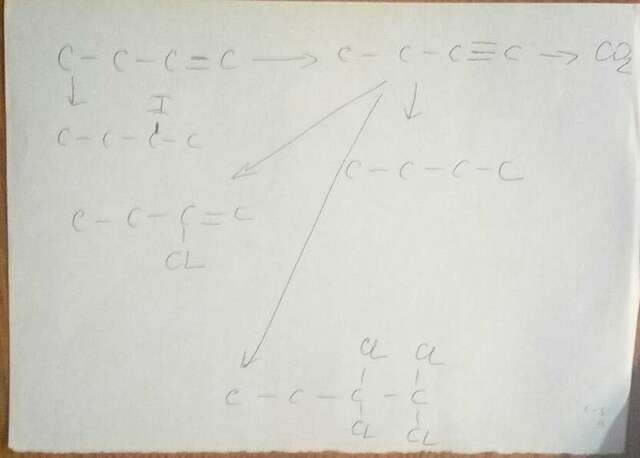 C - C - C = C → C - C - C ≡ C → CO2
↓ ↓
I
C - C - C - C
C - C - C - C
C - C - C = C
CL
Cl Cl
C - C - C - C
Cl Cl